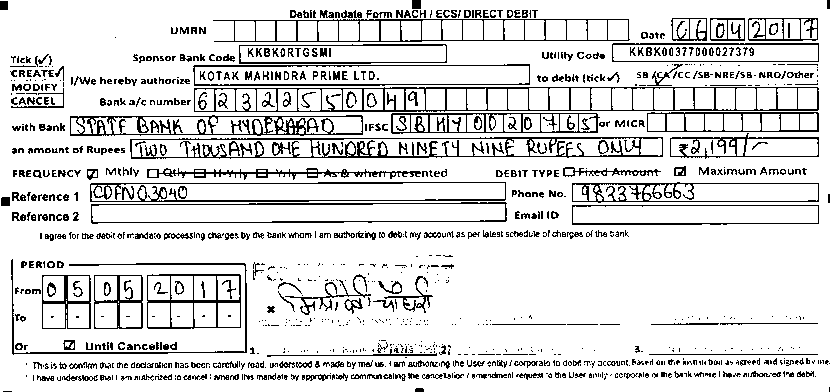 Debit Mandate Form NACH / ECS/ DIRECT DEBIT
UMRN Date 06042017
Tick (✓) Sponsor Bank Code KKBK0RTGSMI Utility Code KKBK00377000027379
CREATE✓ I/We hereby authorize KOTAK MAHINDRA PRIME LTD. to debit (tick✓) SB/CA/CC/SB-NRE/SB-NRO/Other
MODIFY
CANCEL Bank a/c number 62322550049
with Bank STATE BANK OF HYDERABAD IFSC SBHY0020765 or MICR
an amount of Rupees TWO THOUSAND ONE HUNDRED NINETY NINE RUPEES ONLY ₹2,199/-
FREQUENCY ☑ Mthly ☐ Qtly ☐ H-Yrly ☐ Yrly ☐ As & when presented DEBIT TYPE ☐ Fixed Amount ☑ Maximum Amount
Reference 1 CDFN03040 Phone No. 9823766663
Reference 2 Email ID
I agree for the debit of mandate processing charges by the bank whom I am authorizing to debit my account as per latest schedule of charges of the bank
PERIOD
From 05052017
To - - - - - - - -
Or ☑ Until Cancelled 1. 2. 3.
This is to confirm that the declaration has been carefully read, understood & made by me/us. I am authorizing the User entity / corporate to debit my account, Based on the instruction as agreed and signed by me
I have understood that I am authorized to cancel / amend this mandate by appropriately communicating the cancellation / amendment request to the User entity - corporate or the bank where I have authorized the debit.